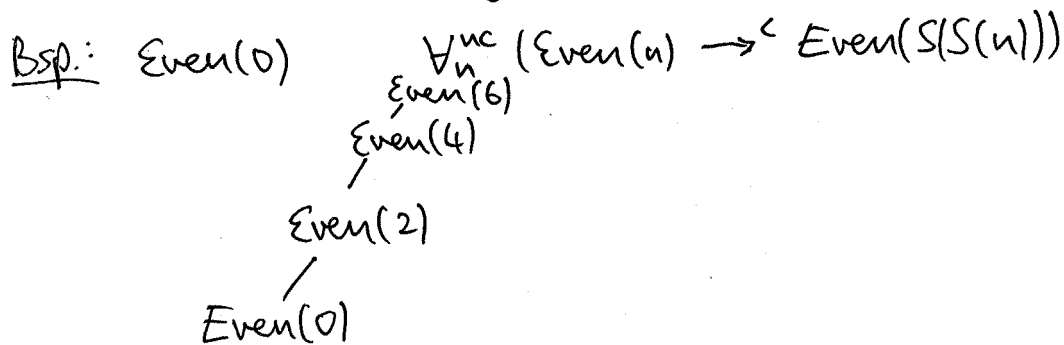 Bsp.: Even(0) ∀ₙⁿᶜ (Even(n) →ᶜ Even(S(S(n)))
Even(6)
Even(4)
Even(2)
Even(0)